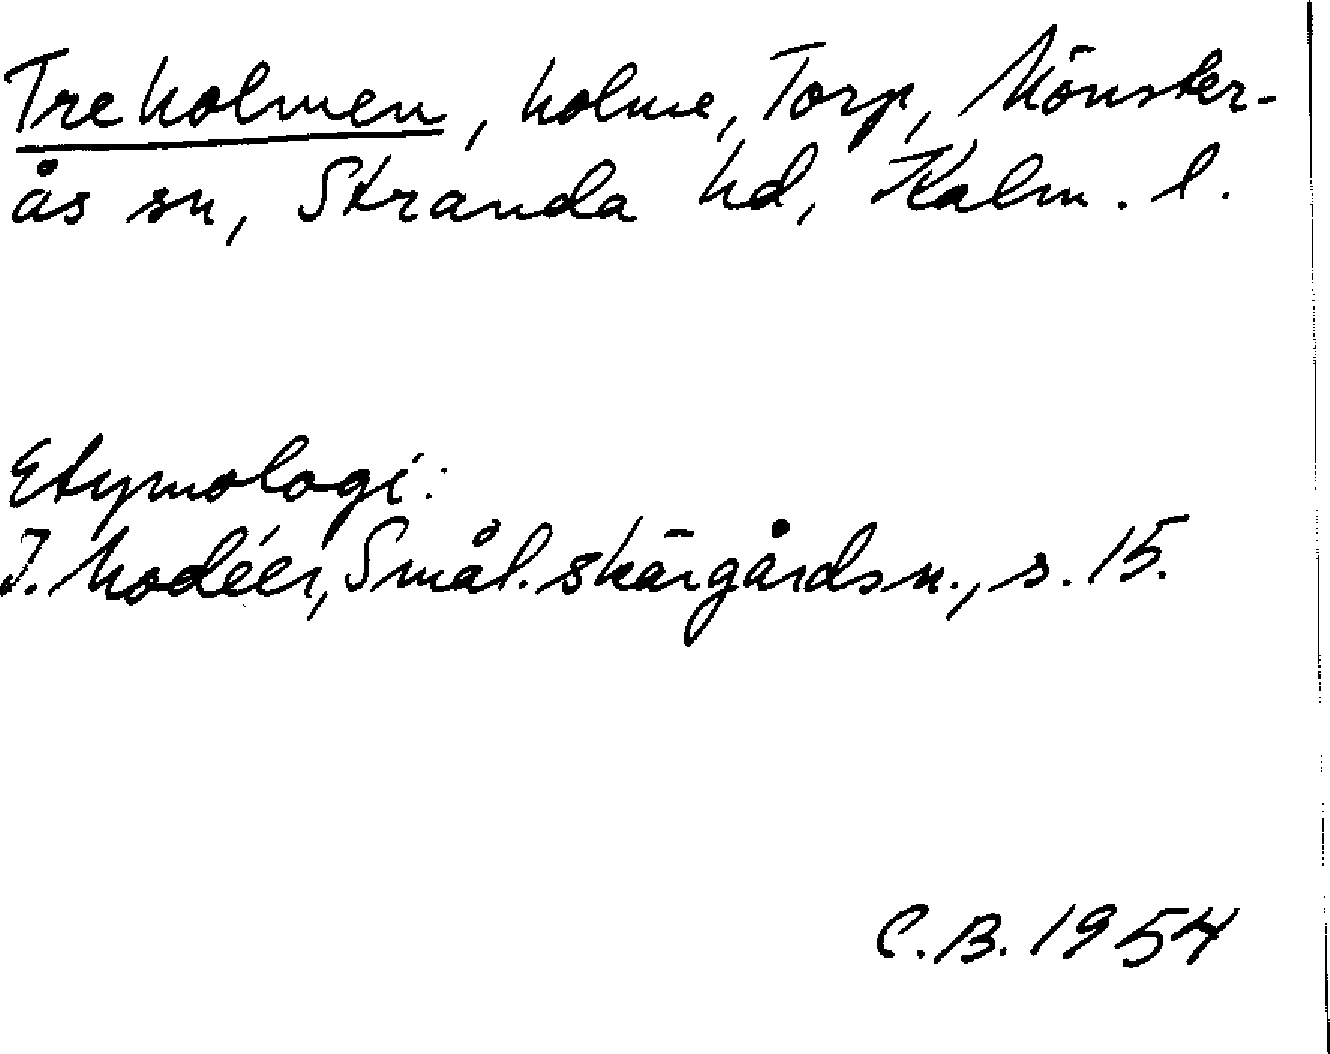 Treholmen, holme, Torp, Mönster-
ås sn, Stranda hd, Kalm. l.
Etymologi:
I. Modéer, Smål. skärgårdsn., s. 15.
C.B. 1954